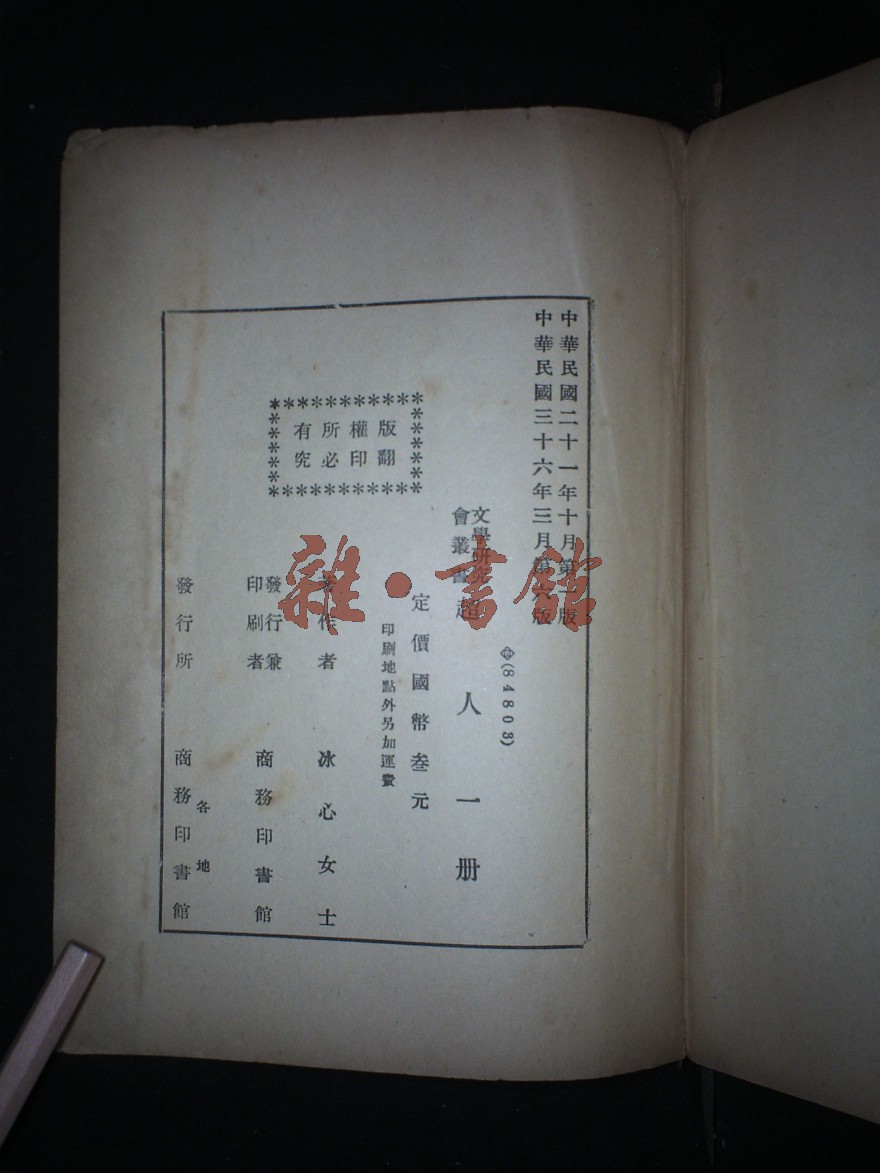 中華民國二十一年十月第一版
中華民國三十六年三月第六版
(84803)
文學研究
會叢書
超人一册
定價國幣叁元
印刷地點外另加運費
版權所有
翻印必究
著作者 冰心女士
發行兼
印刷者 商務印書館
各地
發行所 商務印書館
雜·書館